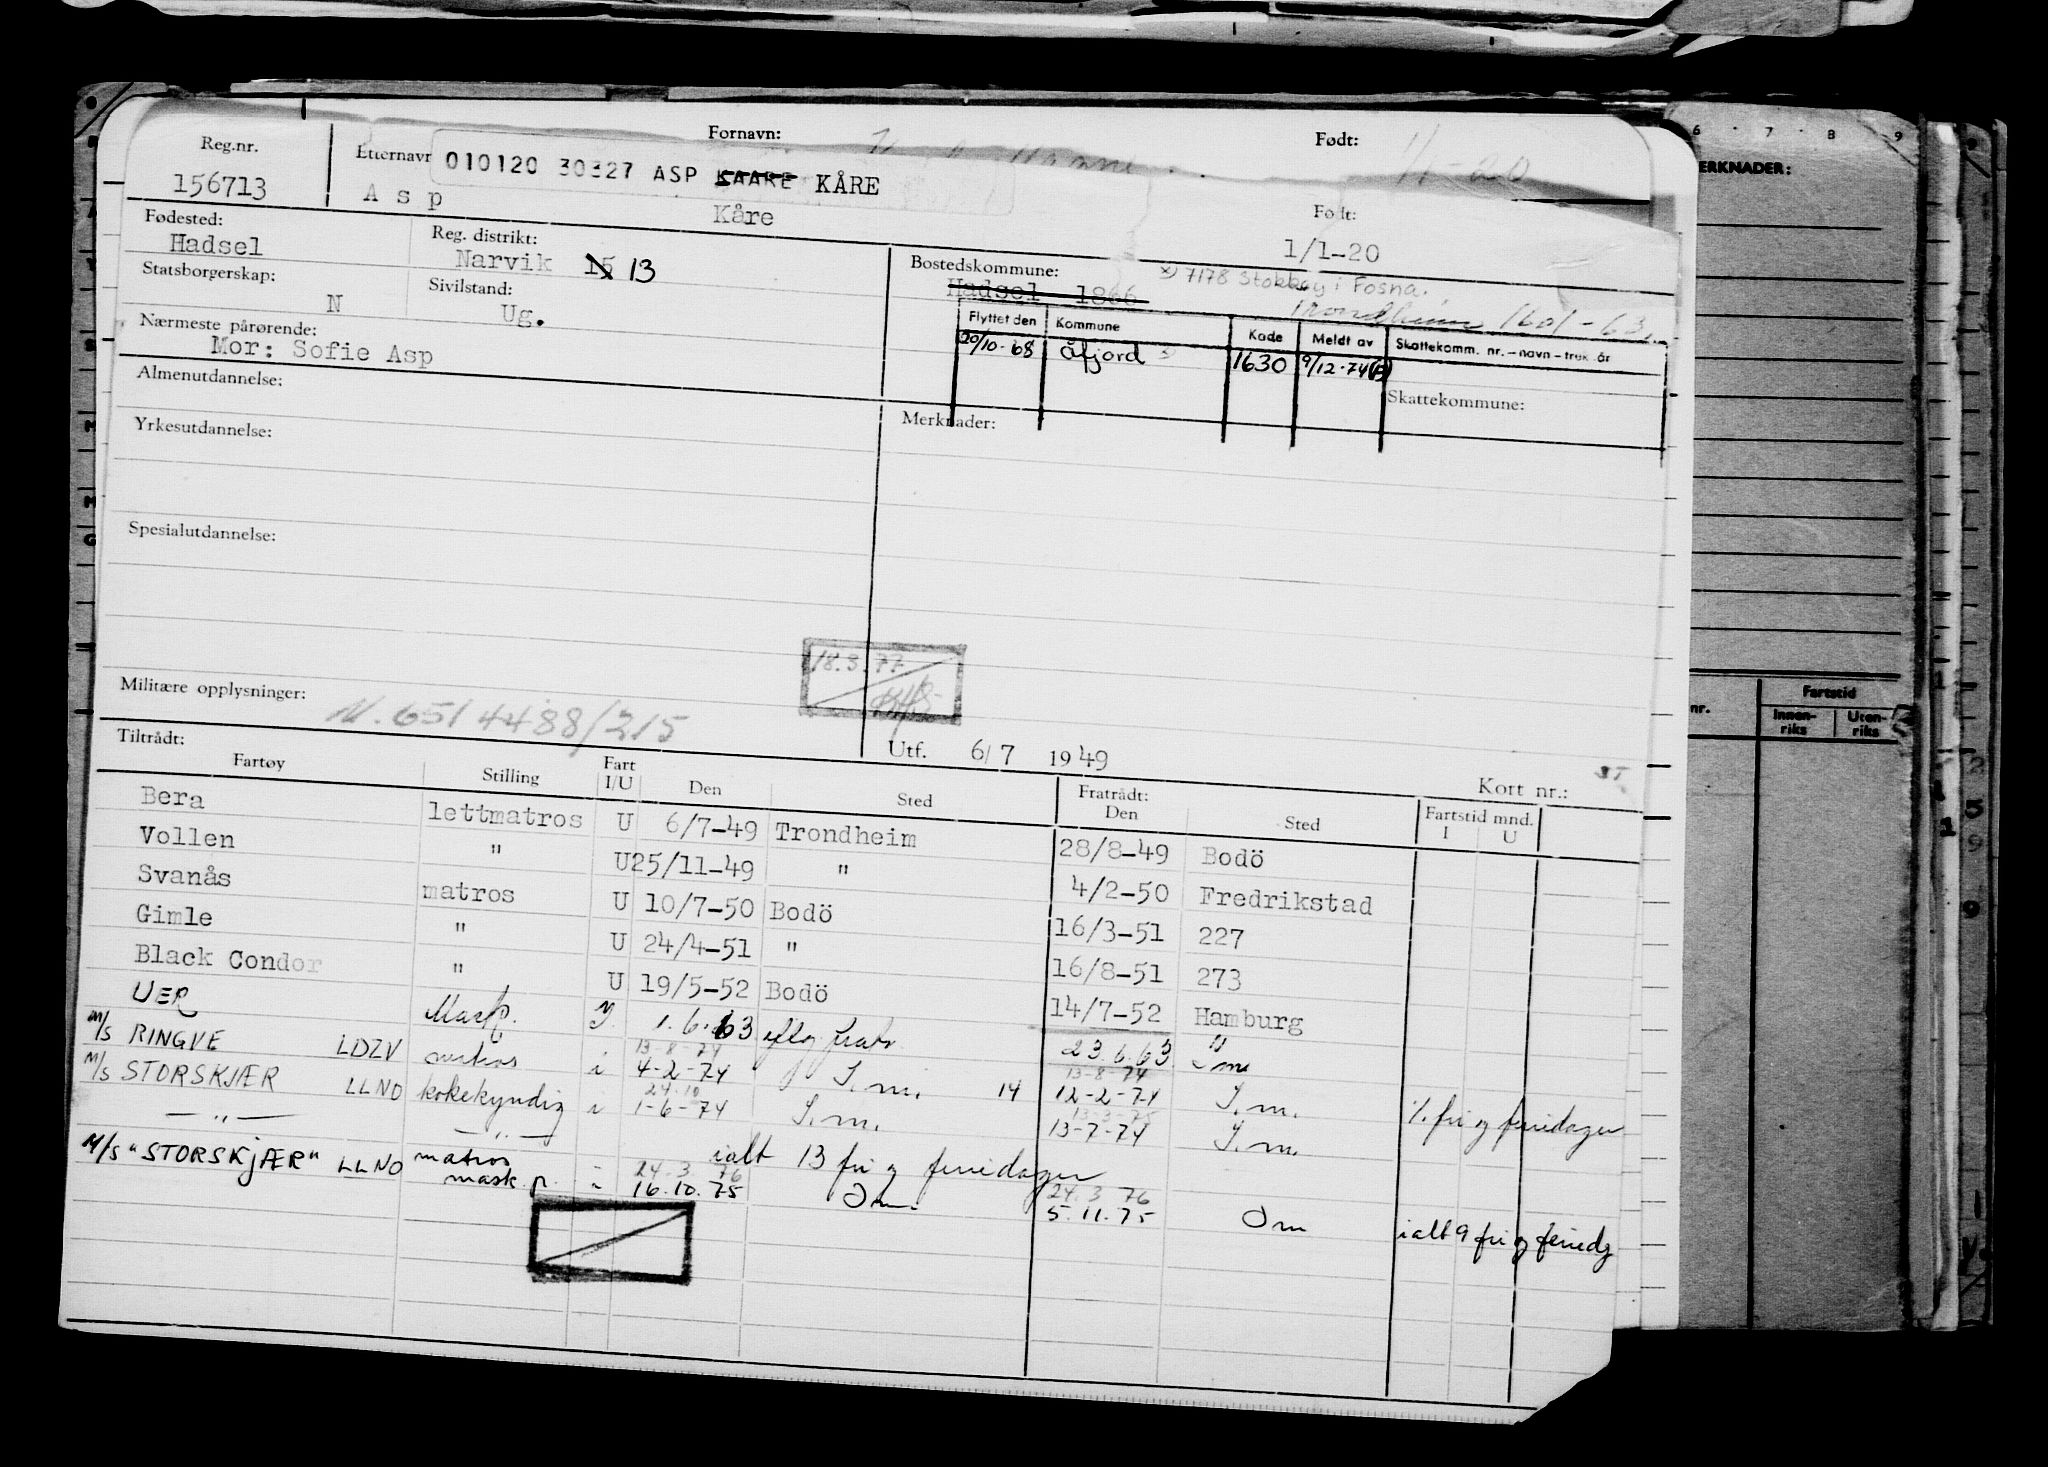 Reg.nr. Etternavn Fornavn: Født:
010120 30327 ASP KAARE KÅRE 1/1-20
156713 Asp Kåre Født:
1/1-20
Fødested: Reg. distrikt: Bostedskommune:
Hadsel Narvik 15 13 Hadsel 1866 x) 7178 Stokkøy i Fosna.
Trondheim 1601-63
Statsborgerskap: Sivilstand:
N Ug.
Flyttet den Kommune Kode Meldt av Skattekomm. nr. - navn - trek. år
20/10-68 Åfjord x) 1630 9/12-74
Nærmeste pårørende:
Mor: Sofie Asp
Skattekommune:
Almenutdannelse: Merknader:
Yrkesutdannelse:
Spesialutdannelse:
18.3.77
Militære opplysninger:
M. 6514488/215
Utf. 6/7 1949
Kort nr.:
Tiltrådt: Fratrådt:
Fartøy Stilling Fart I/U Den Sted Den Sted Fartstid mnd. I U
Bera lettmatros U 6/7-49 Trondheim 28/8-49 Bodö
Vollen " U 25/11-49 " 4/2-50 Fredrikstad
Svanås matros U 10/7-50 Bodö 16/3-51 227
Gimle " U 24/4-51 " 16/8-51 273
Black Condor " U 19/5-52 Bodö 14/7-52 Hamburg
UER 1.6.63 23.6.63
13-8-74 13-8-74
M/S RINGVE LDZV matros i 4-2-74 I.m. 14 12-2-74 I.m. % fri og feriedager
24.10 13-3-75
M/S STORSKJÆR LLNO kokekyndig i 1-6-74 I.m. 13-7-74 I.m.
— " — — " — ialt 13 fri og feriedager
24.3.76 24.3.76
M/S "STORSKJÆR" LLNO matros mask.p. i 16.10.75 Im. 5.11.75 Im ialt 9 fri og feriedg
6 . 7 . 8 . 9
ERKNADER:
nr. Fartstid
Innen-riks Uten-riks